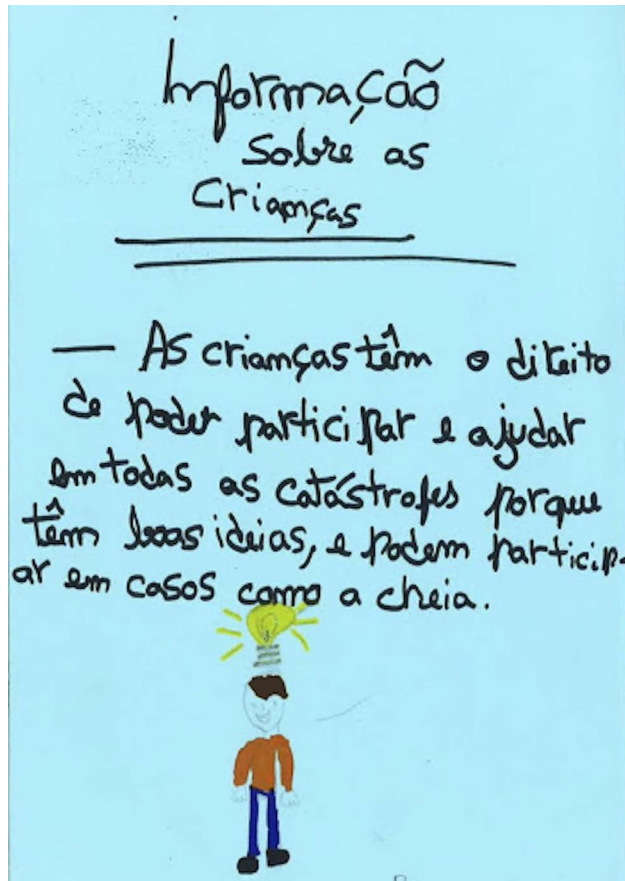 Informação
Sobre as
Crianças
— As crianças têm o direito
de poder participar e ajudar
em todas as catástrofes porque
têm boas ideias, e podem particip-
ar em casos como a cheia.